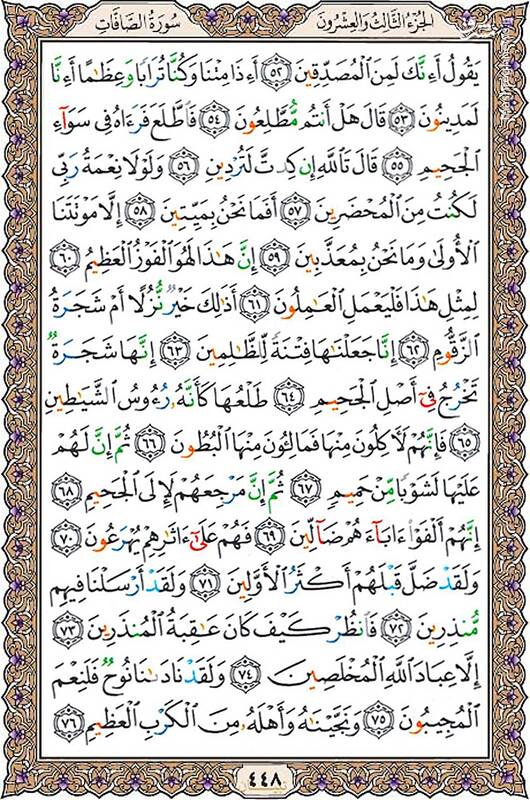 الجزء الثالث والعشرون
سورة الصافات
يَقُولُ أَءِنَّكَ لَمِنَ ٱلْمُصَدِّقِينَ ٥٢ أَءِذَا مِتْنَا وَكُنَّا تُرَابًا وَعِظَـٰمًا أَءِنَّا
لَمَدِينُونَ ٥٣ قَالَ هَلْ أَنتُم مُّطَّلِعُونَ ٥٤ فَٱطَّلَعَ فَرَءَاهُ فِى سَوَآءِ
ٱلْجَحِيمِ ٥٥ قَالَ تَٱللَّهِ إِن كِدتَّ لَتُرْدِينِ ٥٦ وَلَوْلَا نِعْمَةُ رَبِّى
لَكُنتُ مِنَ ٱلْمُحْضَرِينَ ٥٧ أَفَمَا نَحْنُ بِمَيِّتِينَ ٥٨ إِلَّا مَوْتَتَنَا
ٱلْأُولَىٰ وَمَا نَحْنُ بِمُعَذَّبِينَ ٥٩ إِنَّ هَـٰذَا لَهُوَ ٱلْفَوْزُ ٱلْعَظِيمُ ٦٠
لِمِثْلِ هَـٰذَا فَلْيَعْمَلِ ٱلْعَـٰمِلُونَ ٦١ أَذَٰلِكَ خَيْرٌ نُّزُلًا أَمْ شَجَرَةُ
ٱلزَّقُّومِ ٦٢ إِنَّا جَعَلْنَـٰهَا فِتْنَةً لِّلظَّـٰلِمِينَ ٦٣ إِنَّهَا شَجَرَةٌ
تَخْرُجُ فِىٓ أَصْلِ ٱلْجَحِيمِ ٦٤ طَلْعُهَا كَأَنَّهُۥ رُءُوسُ ٱلشَّيَـٰطِينِ
٦٥ فَإِنَّهُمْ لَـَٔاكِلُونَ مِنْهَا فَمَالِـُٔونَ مِنْهَا ٱلْبُطُونَ ٦٦ ثُمَّ إِنَّ لَهُمْ
عَلَيْهَا لَشَوْبًا مِّنْ حَمِيمٍ ٦٧ ثُمَّ إِنَّ مَرْجِعَهُمْ لَإِلَى ٱلْجَحِيمِ ٦٨
إِنَّهُمْ أَلْفَوْا۟ ءَابَآءَهُمْ ضَآلِّينَ ٦٩ فَهُمْ عَلَىٰٓ ءَاثَـٰرِهِمْ يُهْرَعُونَ ٧٠
وَلَقَدْ ضَلَّ قَبْلَهُمْ أَكْثَرُ ٱلْأَوَّلِينَ ٧١ وَلَقَدْ أَرْسَلْنَا فِيهِم
مُّنذِرِينَ ٧٢ فَٱنظُرْ كَيْفَ كَانَ عَـٰقِبَةُ ٱلْمُنذَرِينَ ٧٣
إِلَّا عِبَادَ ٱللَّهِ ٱلْمُخْلَصِينَ ٧٤ وَلَقَدْ نَادَىٰنَا نُوحٌ فَلَنِعْمَ
ٱلْمُجِيبُونَ ٧٥ وَنَجَّيْنَـٰهُ وَأَهْلَهُۥ مِنَ ٱلْكَرْبِ ٱلْعَظِيمِ ٧٦
٤٤٨